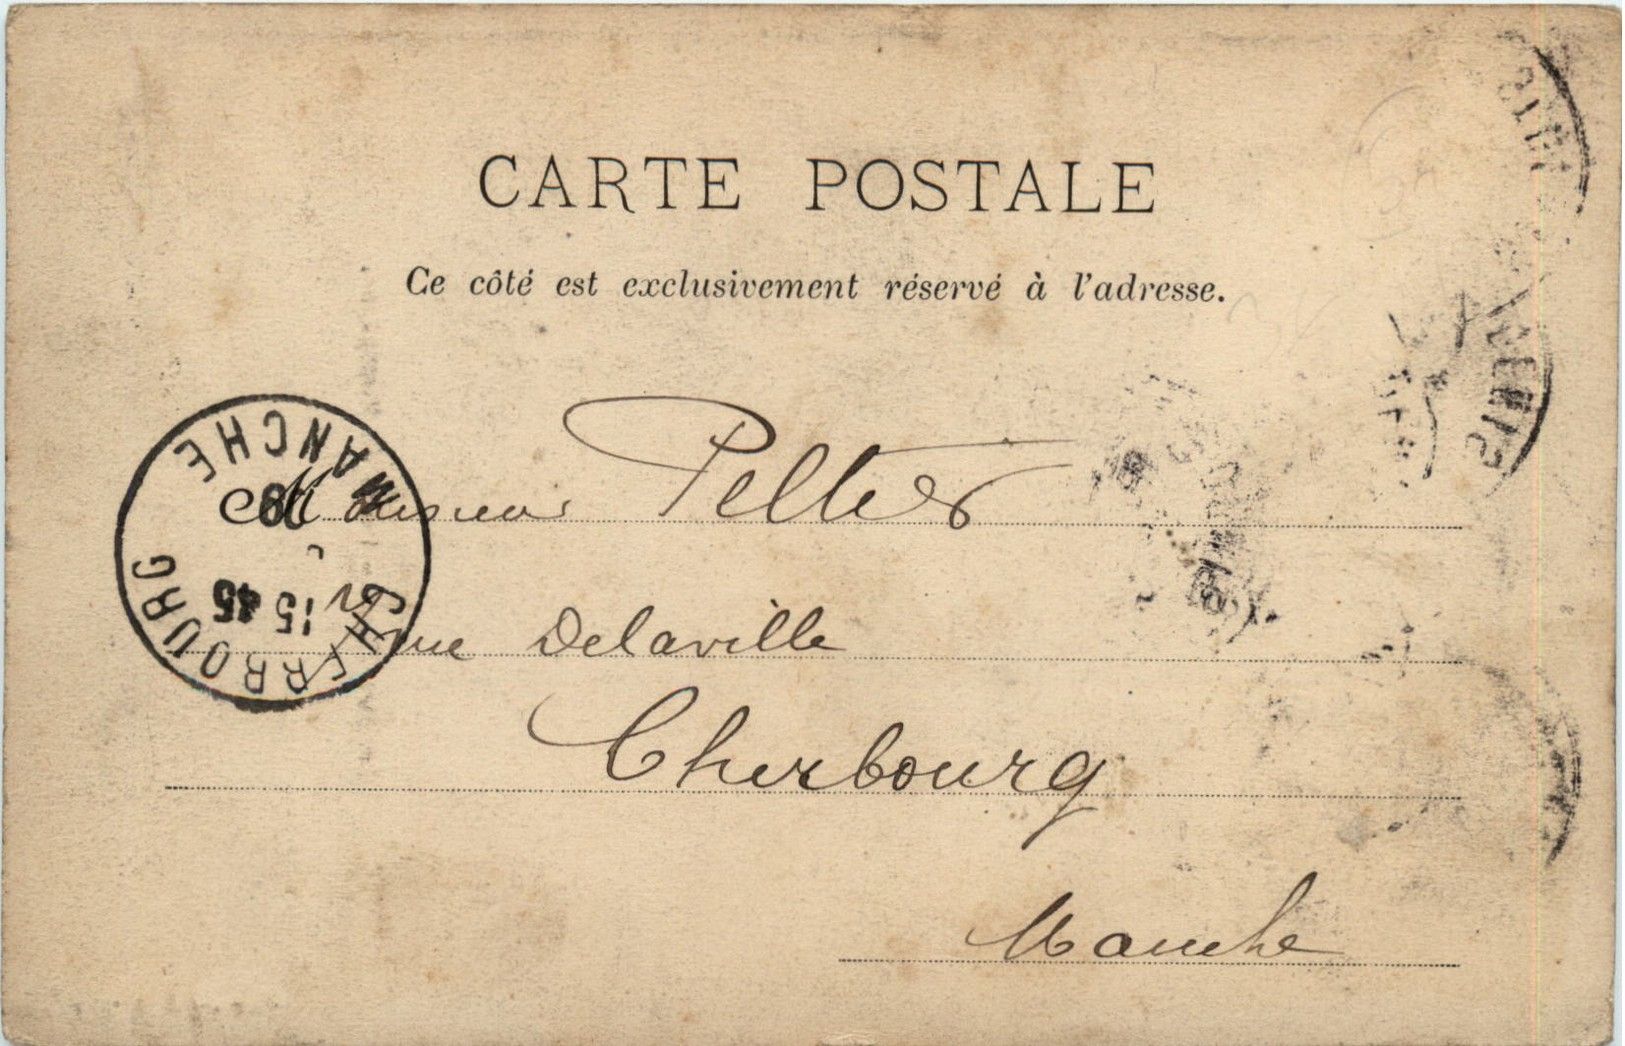 CARTE POSTALE
Ce côté est exclusivement réservé à l'adresse.
Monsieur Peltier
rue Delaville
Cherbourg
Manche
CHERBOURG
15 45
09
MANCHE